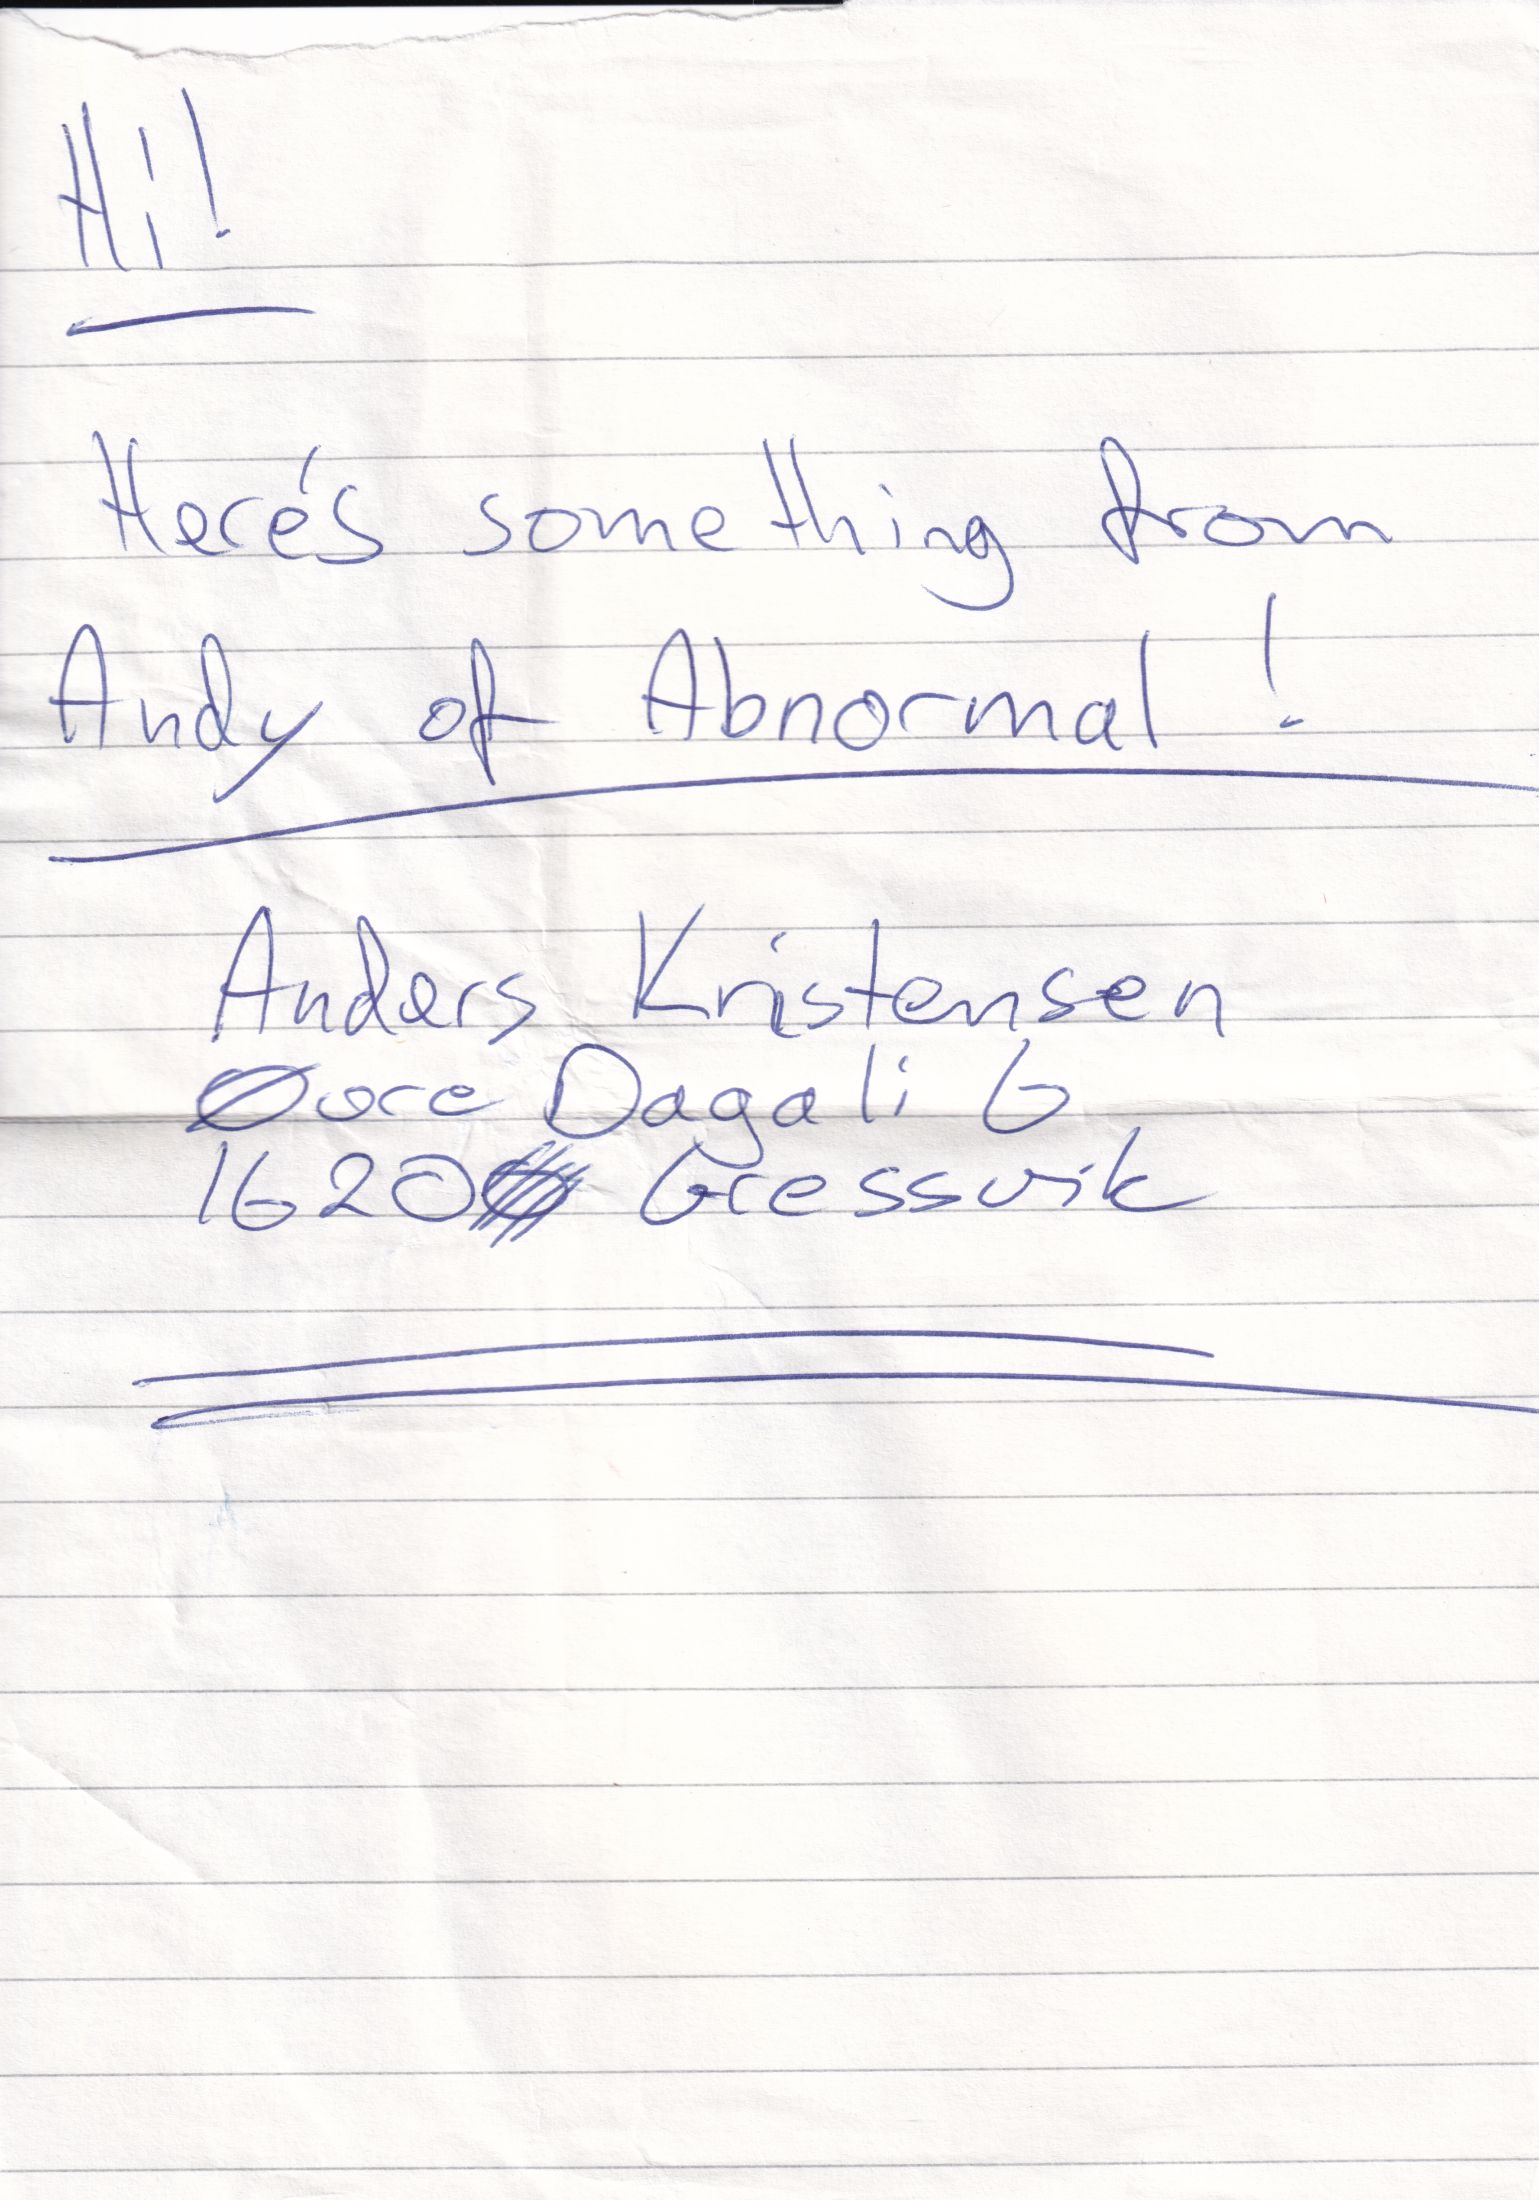 Hi!
Here's something from
Andy of Abnormal!
Anders Kristensen
Øvre Dagali 6
1620 Gressvik